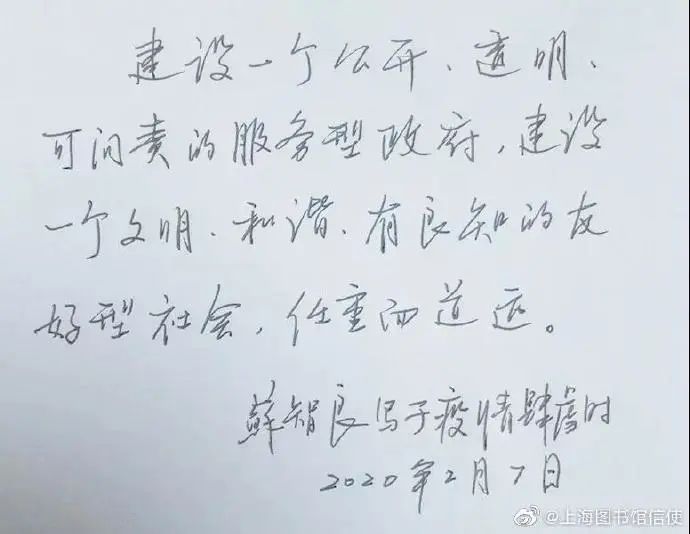 建设一个公开、透明、
可问责的服务型政府，建设
一个文明、和谐、有良知的友
好型社会，任重而道远。
蘇智良写于疫情肆虐时
2020年2月7日
@上海图书馆信使